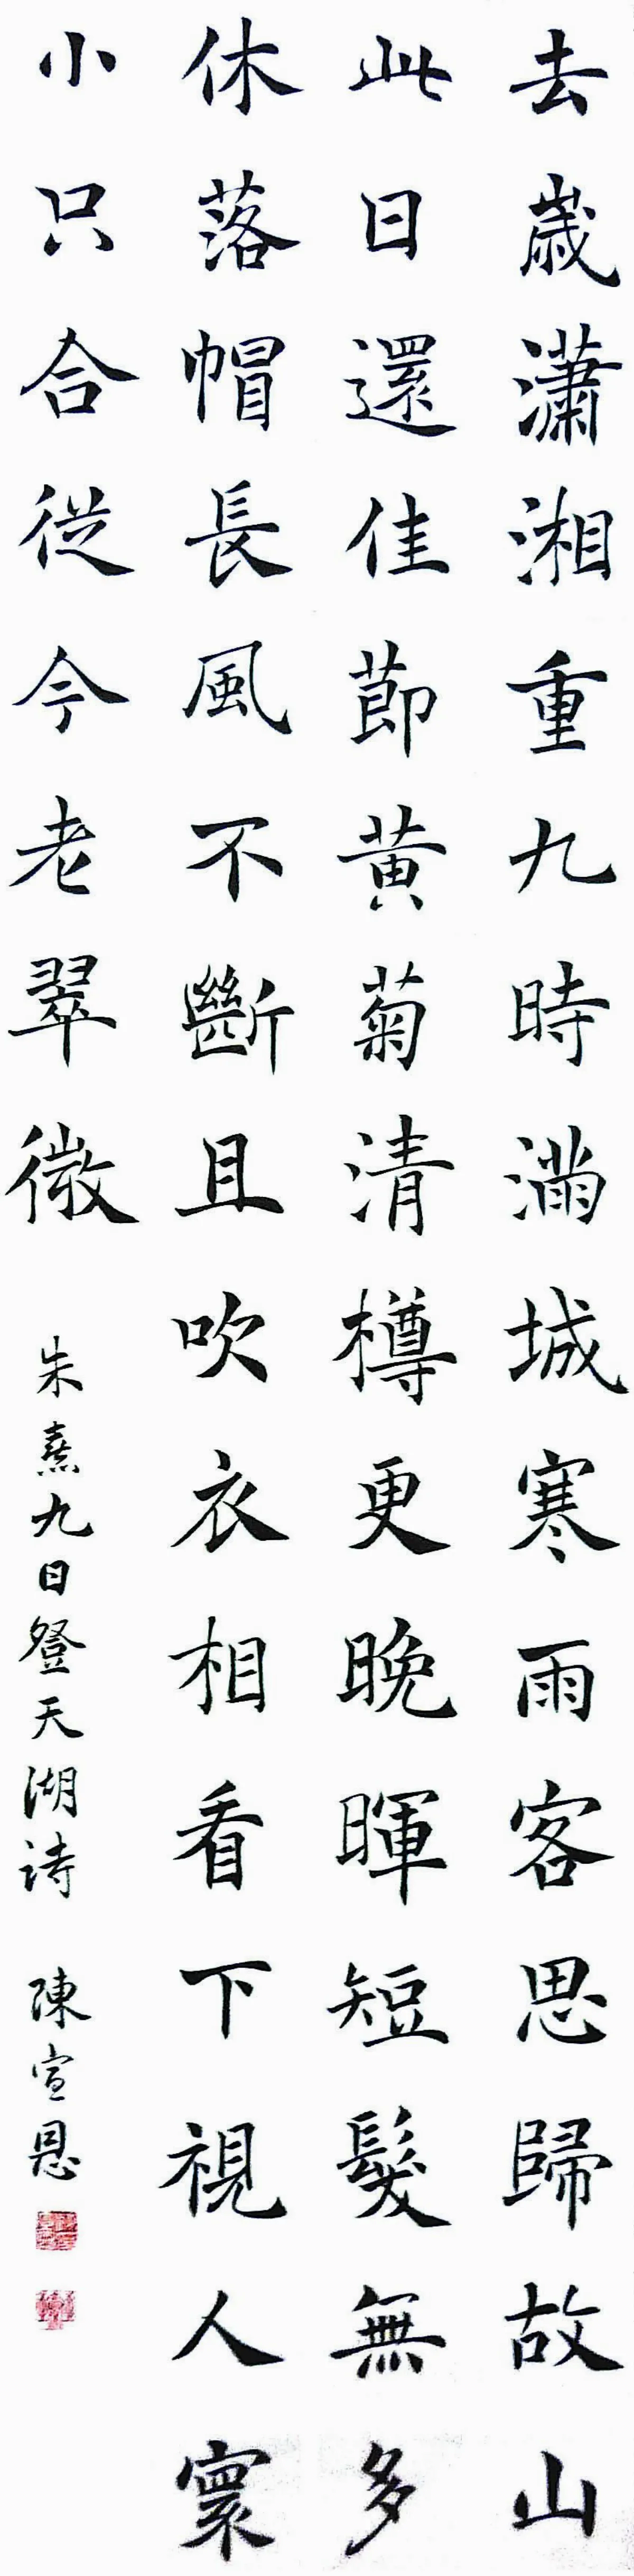 去歲瀟湘重九時滿城寒雨客思歸故山
此日還佳節黃菊清樽更晚暉短髮無多
休落帽長風不斷且吹衣相看下視人寰
小只合從今老翠微
朱熹九日登天湖詩
陳宣恩